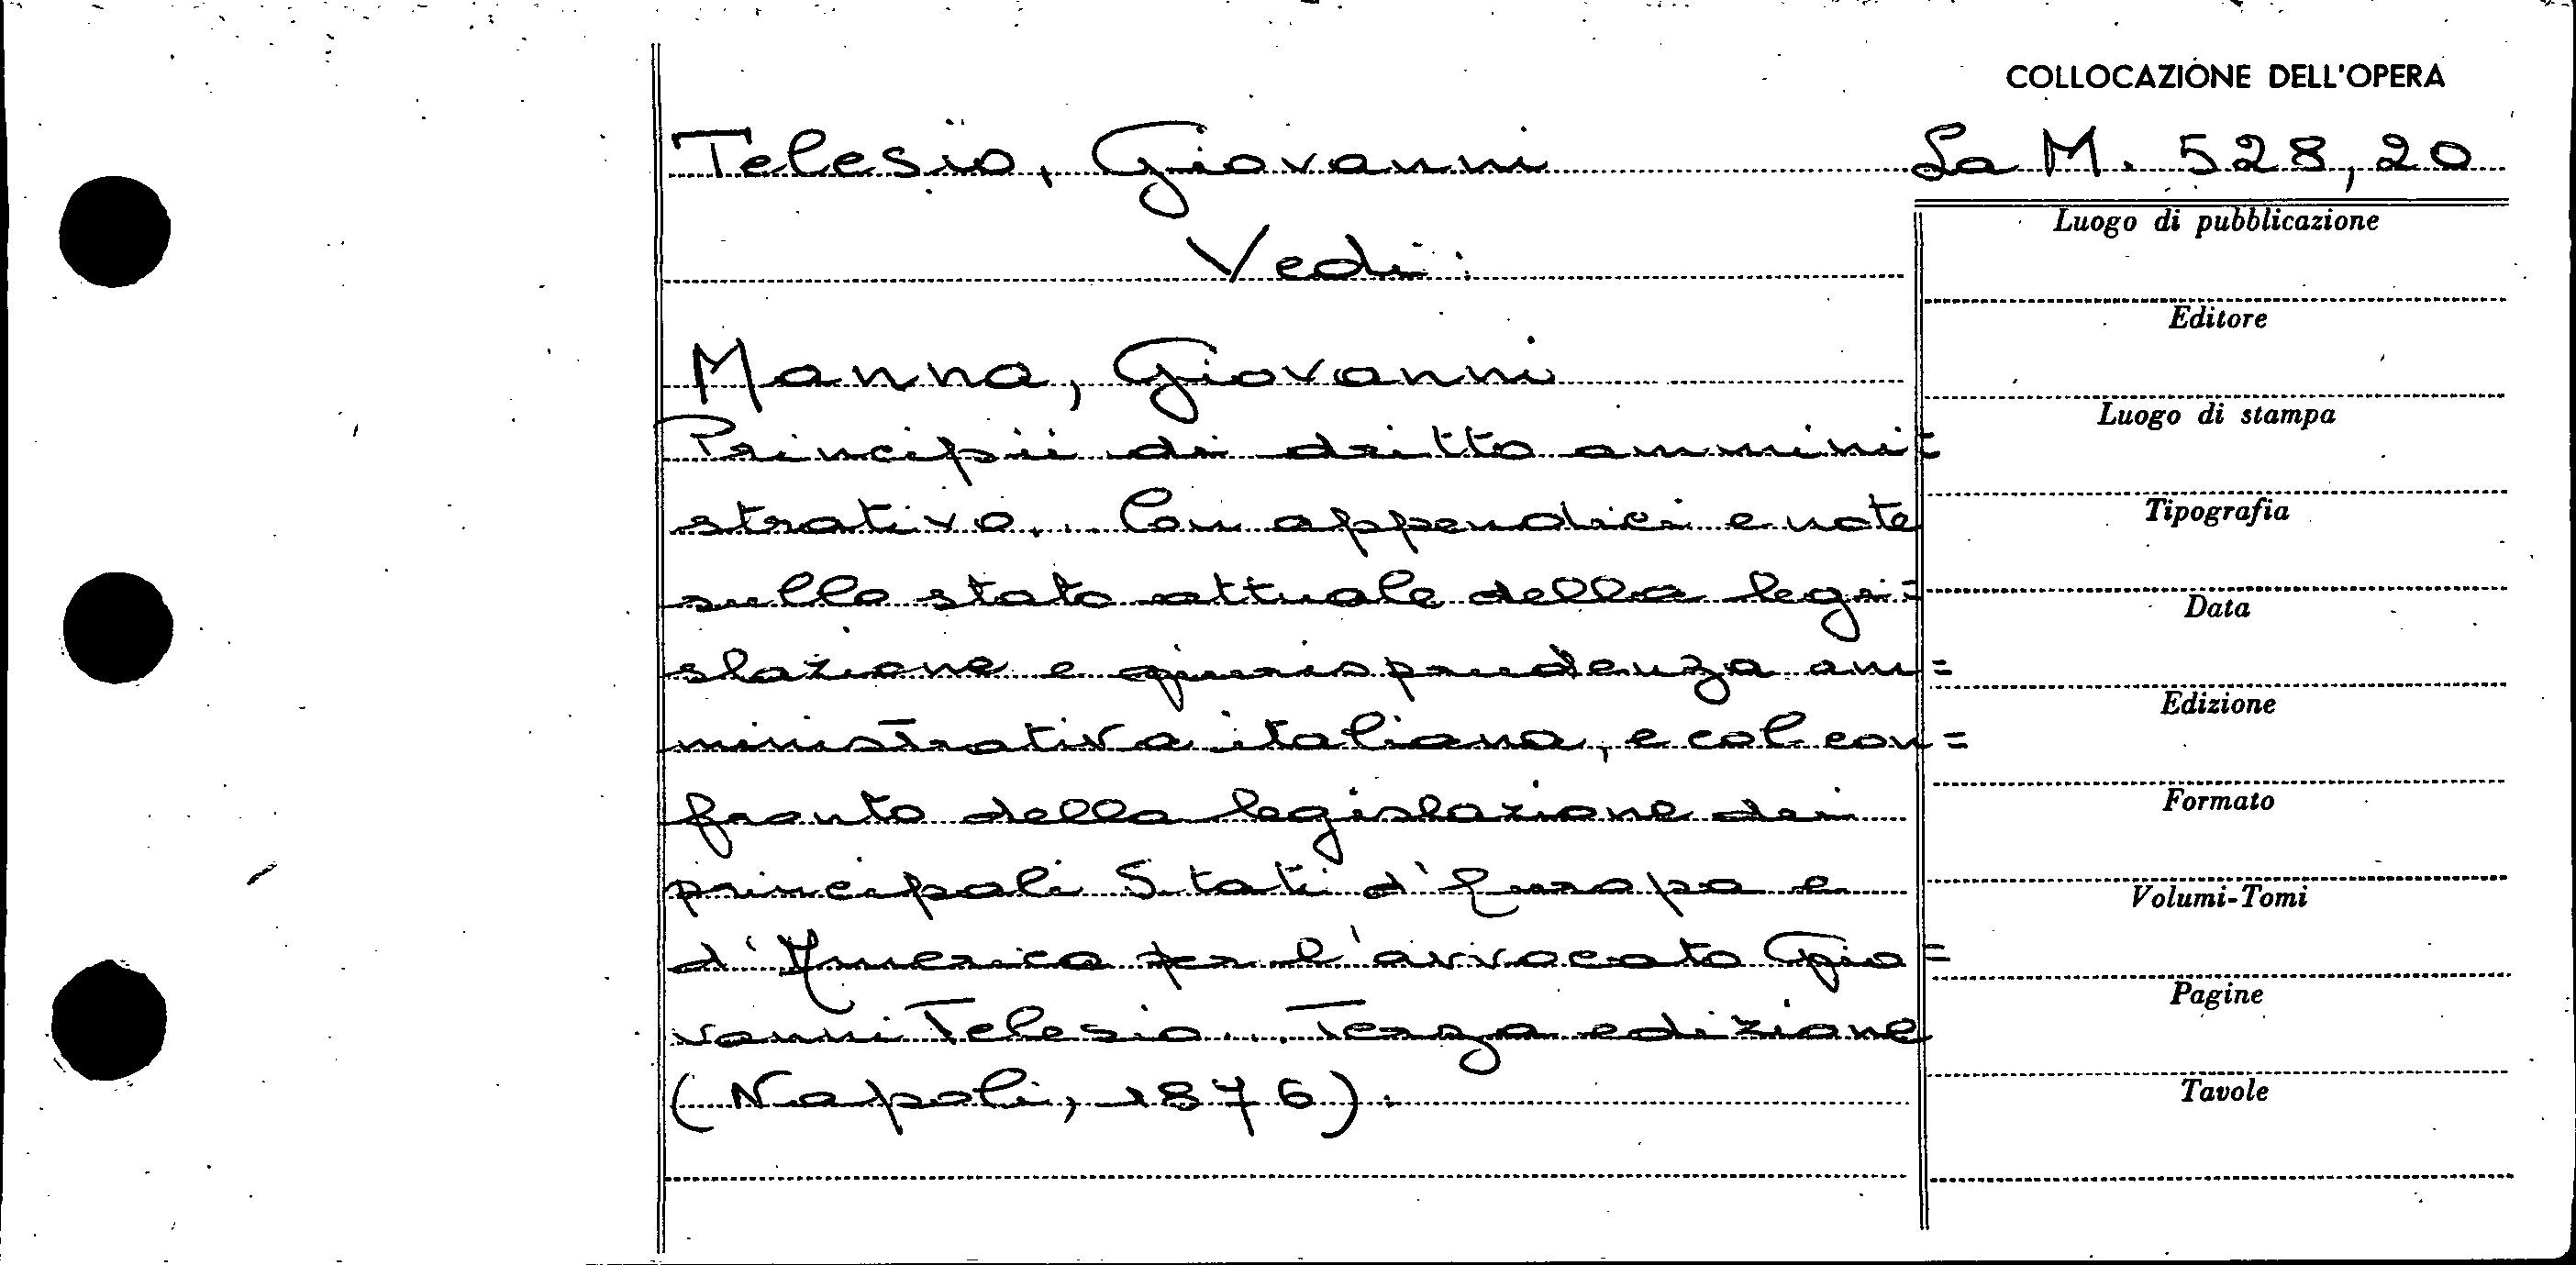 COLLOCAZIONE DELL'OPERA
Telesio, Giovanni
La M. 528,20
Vedi:
Manna, Giovanni
Principii di dritto ammini=
strativo. Con appendici e note
sullo stato attuale della legi=
slazione e giurisprudenza am=
ministrativa italiana, e col con=
fronto della legislazione dei
principali Stati d'Europa e
d'America per l'avvocato Gio=
vanni Telesio. Terza edizione
(Napoli, 1876).
Luogo di pubblicazione
Editore
Luogo di stampa
Tipografia
Data
Edizione
Formato
Volumi-Tomi
Pagine
Tavole